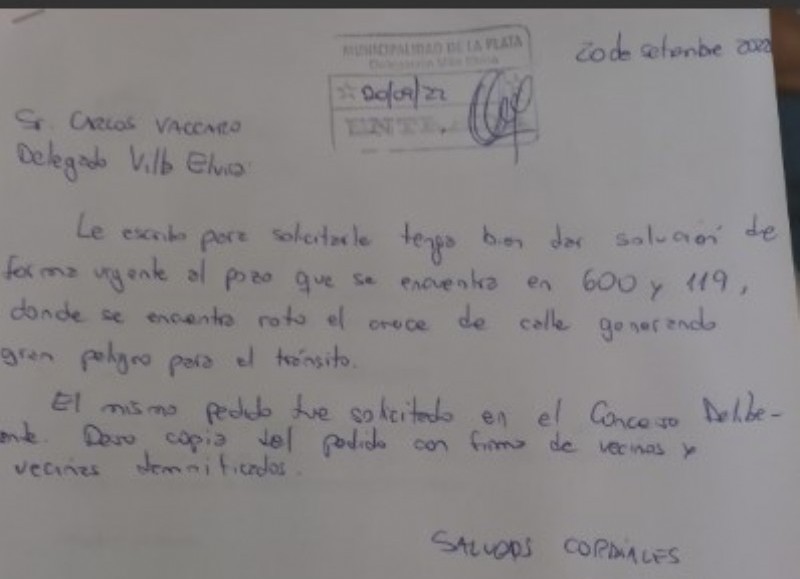 MUNICIPALIDAD DE LA PLATA
Delegación Villa Elvira
20 de setiembre 2022
20/09/22
ENTR
Sr. CARLOS VACCARO
Delegado Villa Elvira
Le escribo para solicitarle tenga bien dar solución de
forma urgente al pozo que se encuentra en 600 y 119,
donde se encuentra roto el cruce de calle generando
gran peligro para el tránsito.
El mismo pedido fue solicitado en el Concejo Delibe-
ante. Dejo copia del pedido con firma de vecinos y
vecinas damnificados.
SALUDOS CORDIALES